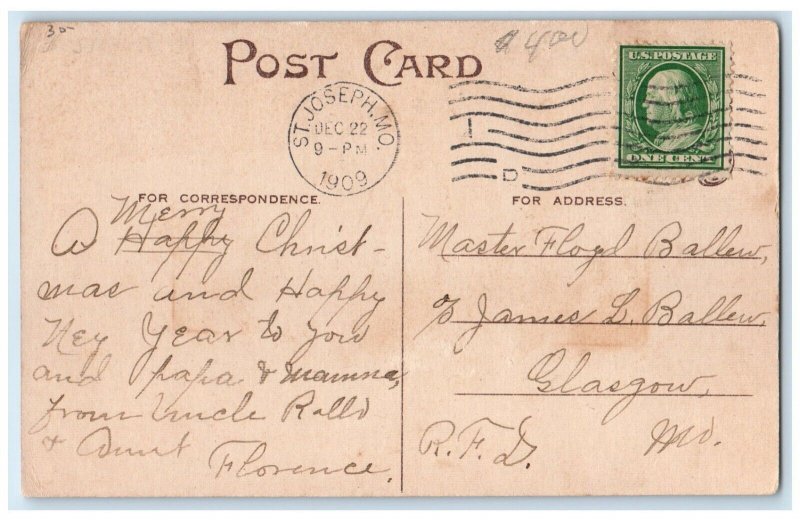 30
400
POST CARD
U.S. POSTAGE
ONE CENT
ST. JOSEPH, MO.
DEC 22
9 - PM
1909
1
D
FOR CORRESPONDENCE.
FOR ADDRESS.
Merry
A Happy Christ-
mas and Happy
Ney Year to you
and papa & mamma,
from Uncle Rollo
& Aunt
Florence.
Master Floyd Ballew,
% James L. Ballew,
Glasgow,
R.F.D. Mo.